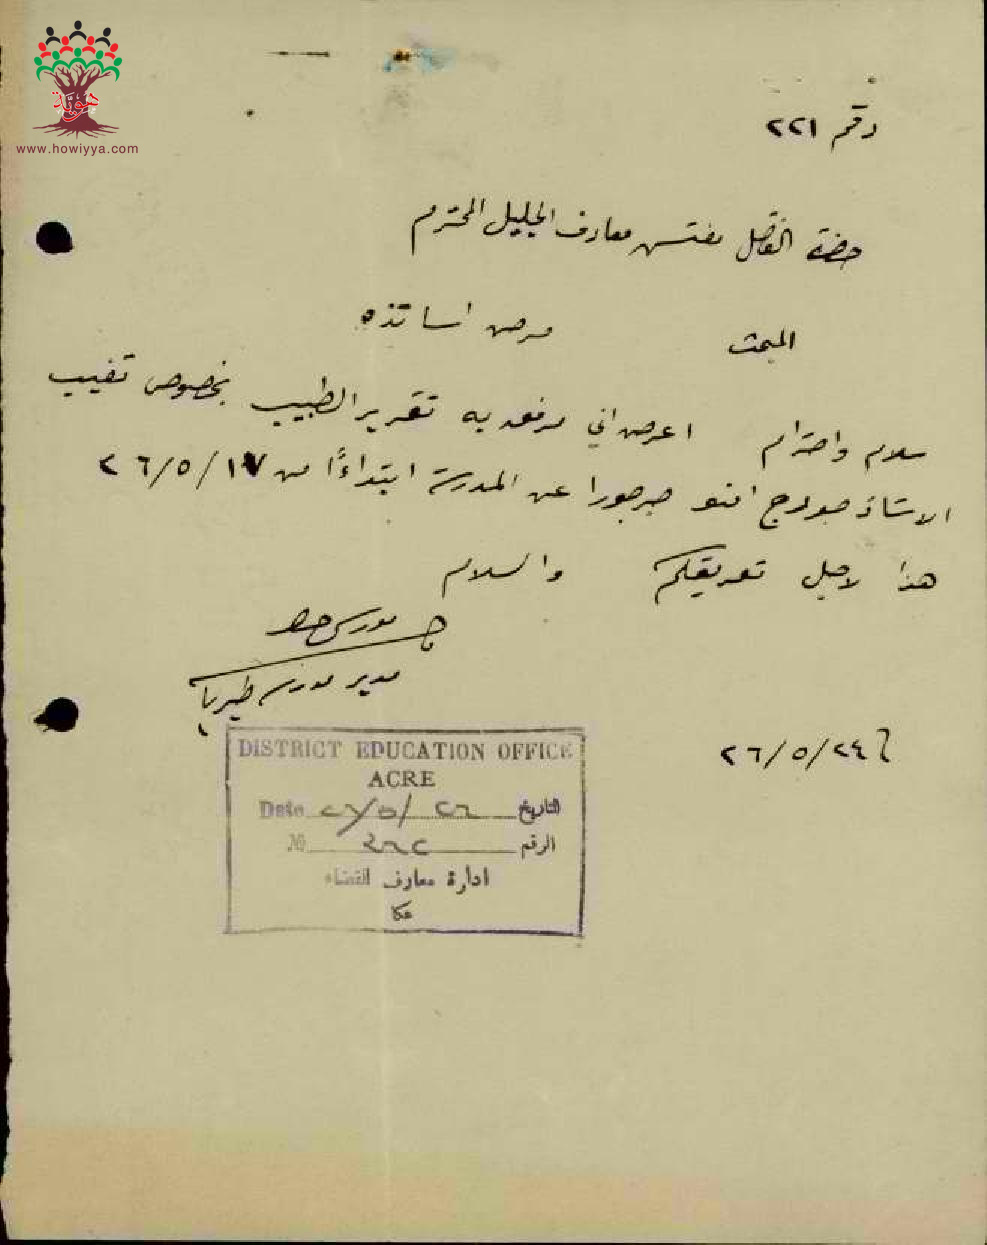 هوية
www.howiyya.com
رقم ٢٢١
حضرة الفاضل مفتش معارف الجليل المحترم
المبحث مرض اساتذه
سلام واحترام اعرض اني مرفق به تقرير الطبيب بخصوص تغيب
الاستاذ جورج افندي جرجورا عن المدرسة ابتداءًا من ١٧/٥/٢٦
هذا لاجل تعريفكم والسلام
مدير مدرسة طبريا
٢٤/٥/٢٦
DISTRICT EDUCATION OFFICE
ACRE
Date التاريخ
№ الرقم
ادارة معارف القضاء
عكا